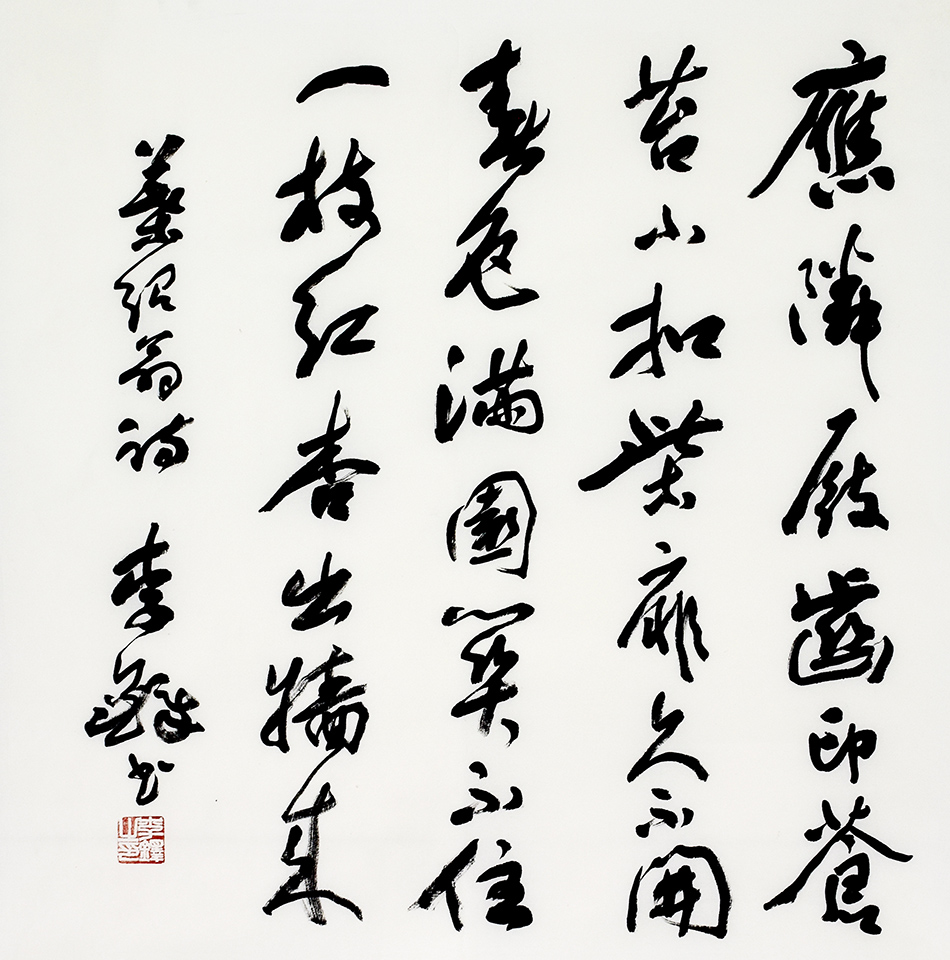 應憐屐齒印蒼
苔小扣柴扉久不開
春色滿園關不住
一枝紅杏出牆來
葉紹翁詩 李鐸書
李鐸之印